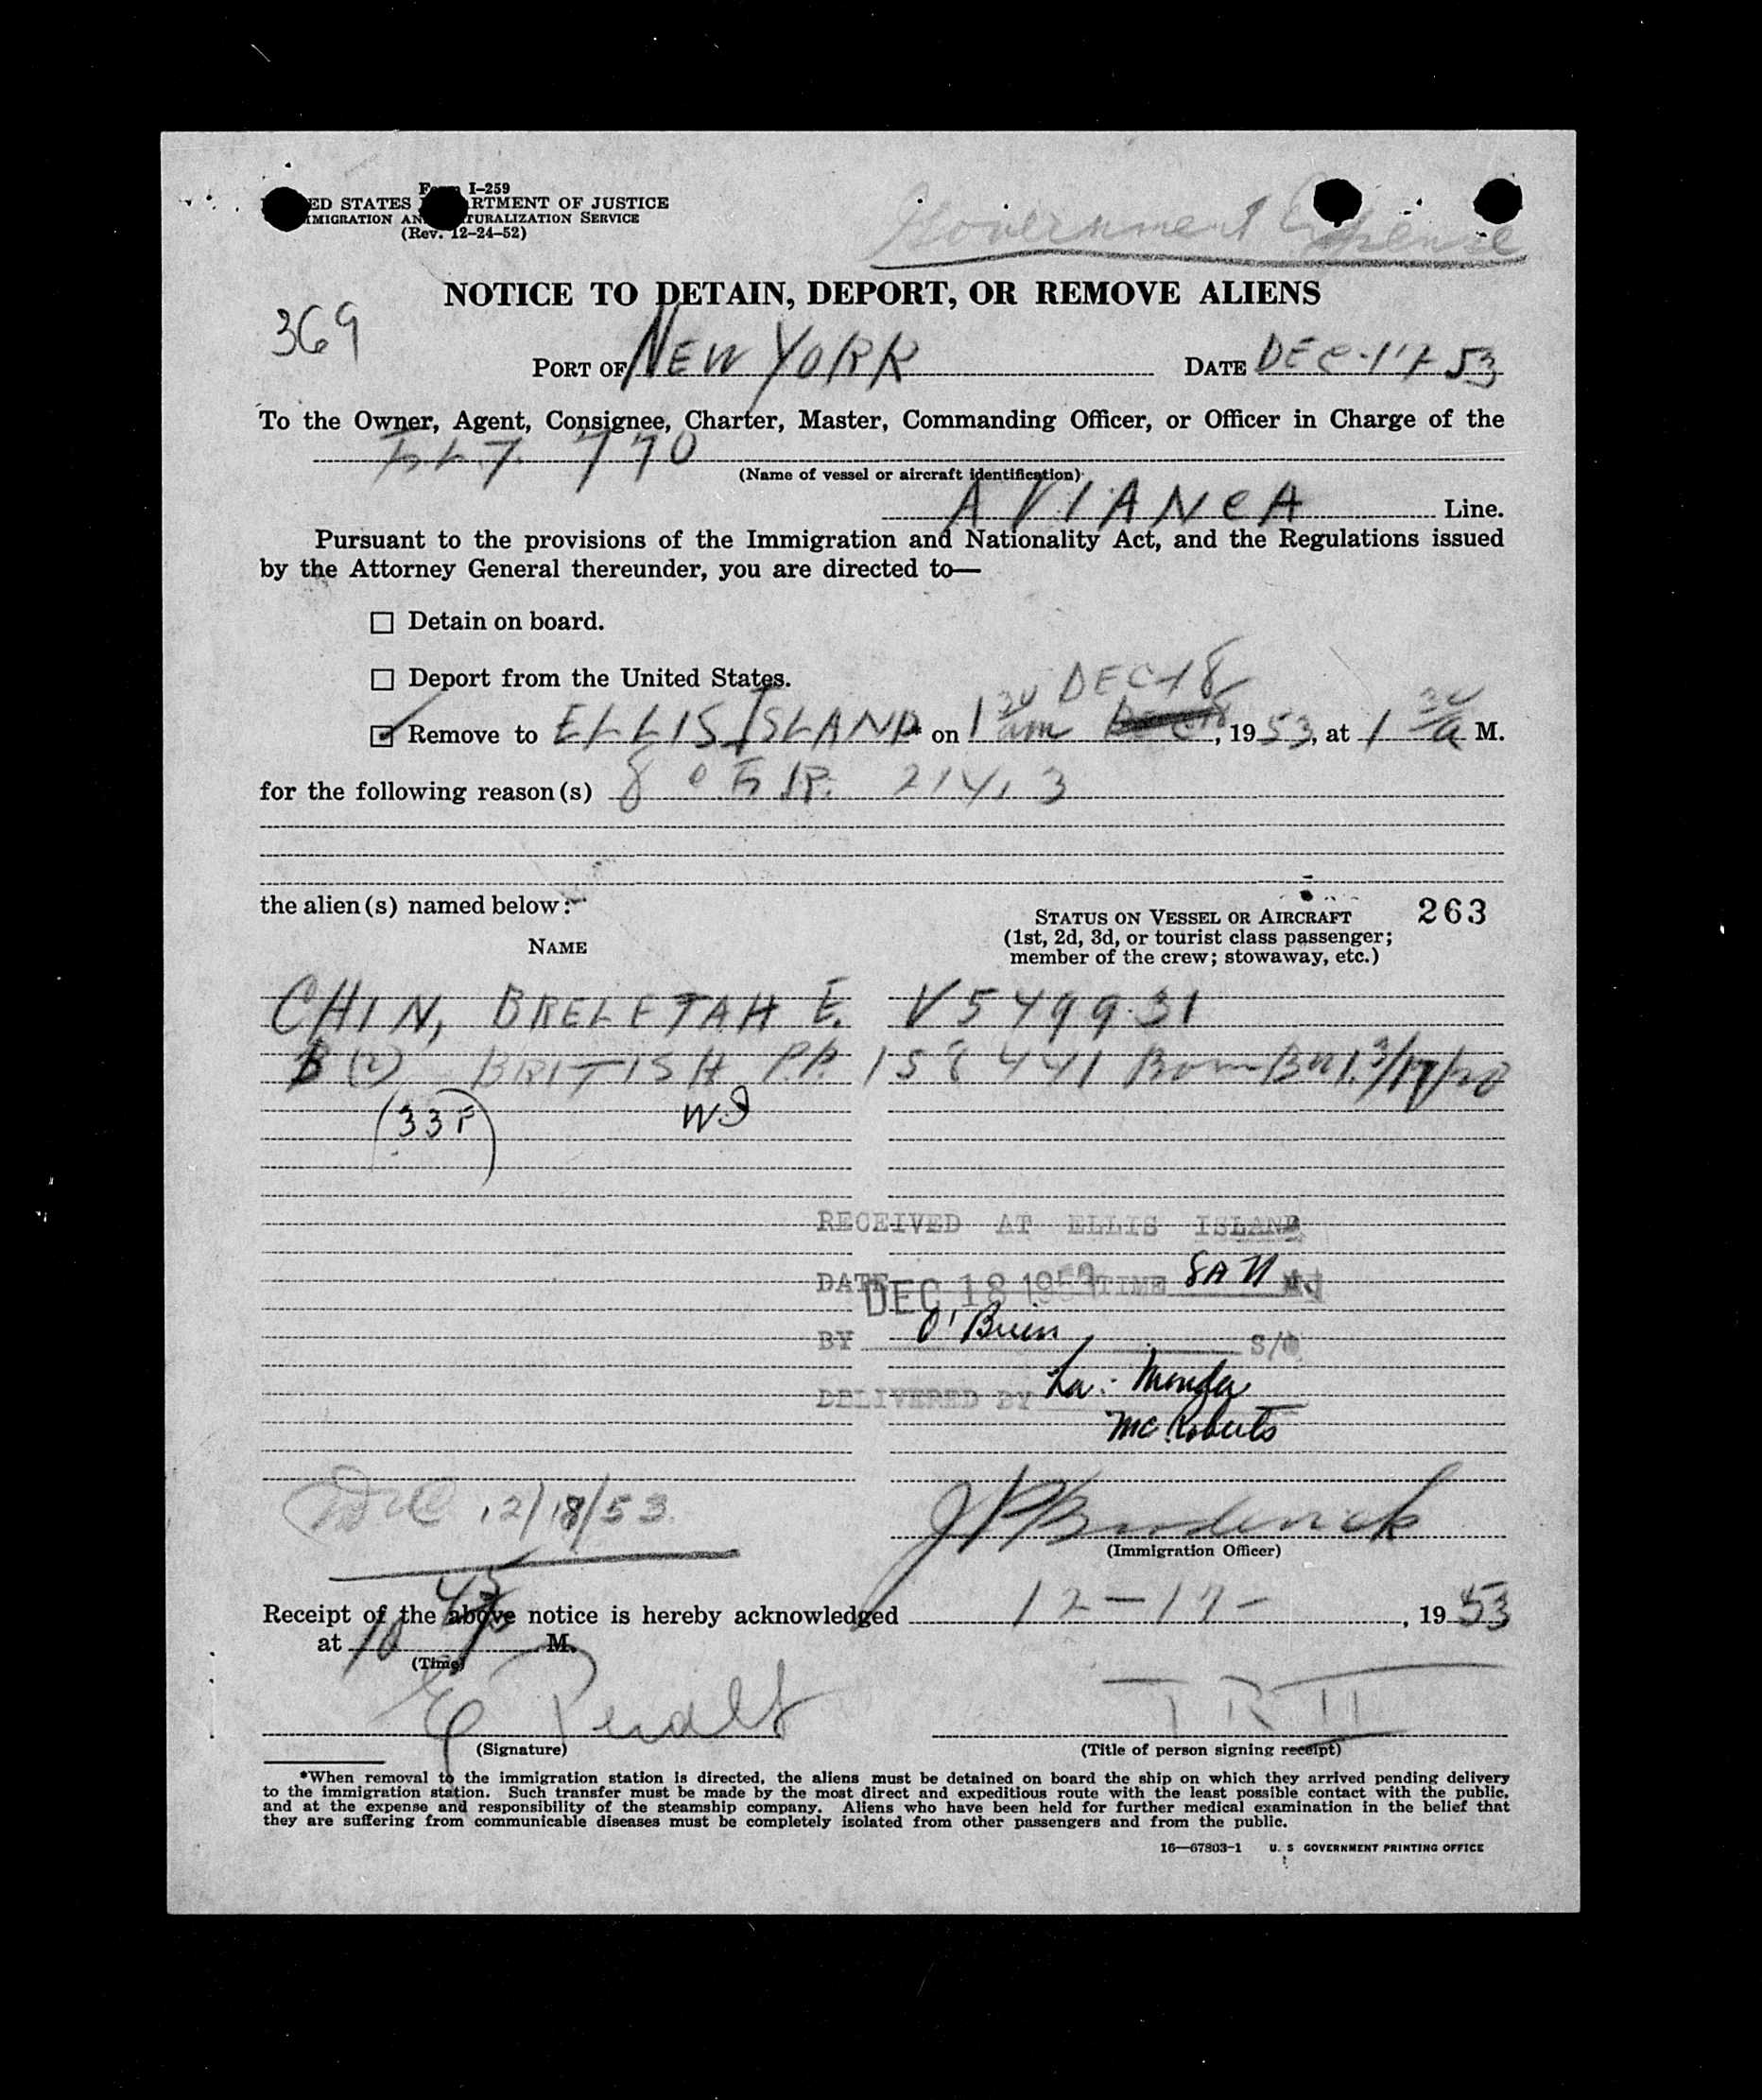 I-259
ED STATES RTMENT OF JUSTICE
MIGRATION AN TURALIZATION SERVICE
(Rev. 12-24-52)
Government Expense
NOTICE TO DETAIN, DEPORT, OR REMOVE ALIENS
369
PORT OF NEW YORK DATE DEC-17 53
To the Owner, Agent, Consignee, Charter, Master, Commanding Officer, or Officer in Charge of the
FLT. 770
(Name of vessel or aircraft identification)
AVIANCA Line.
Pursuant to the provisions of the Immigration and Nationality Act, and the Regulations issued
by the Attorney General thereunder, you are directed to—
☐ Detain on board.
☐ Deport from the United States.
DEC 18
☑ Remove to ELLIS ISLAND* on 1 30 am, 1953, at 1 30 a M.
for the following reason(s) 8 CFR. 214.3
the alien(s) named below:
263
STATUS ON VESSEL OR AIRCRAFT
(1st, 2d, 3d, or tourist class passenger;
member of the crew; stowaway, etc.)
NAME
CHIN, BRELETAH E. V549931
B(2) BRITISH P.P. 158441 Born
(33F)
RECEIVED AT ELLIS ISLAND
DATE DEC 18 1953 TIME 8A
BY O'Brien S/O
DELIVERED BY La. Monda
McRoberts
12/18/53
J P Broderick
(Immigration Officer)
Receipt of the above notice is hereby acknowledged 12-17-, 1953
at 10 45 M.
(Time)
(Signature)
(Title of person signing receipt)
*When removal to the immigration station is directed, the aliens must be detained on board the ship on which they arrived pending delivery
to the immigration station. Such transfer must be made by the most direct and expeditious route with the least possible contact with the public,
and at the expense and responsibility of the steamship company. Aliens who have been held for further medical examination in the belief that
they are suffering from communicable diseases must be completely isolated from other passengers and from the public.
16—67803-1 U. S GOVERNMENT PRINTING OFFICE